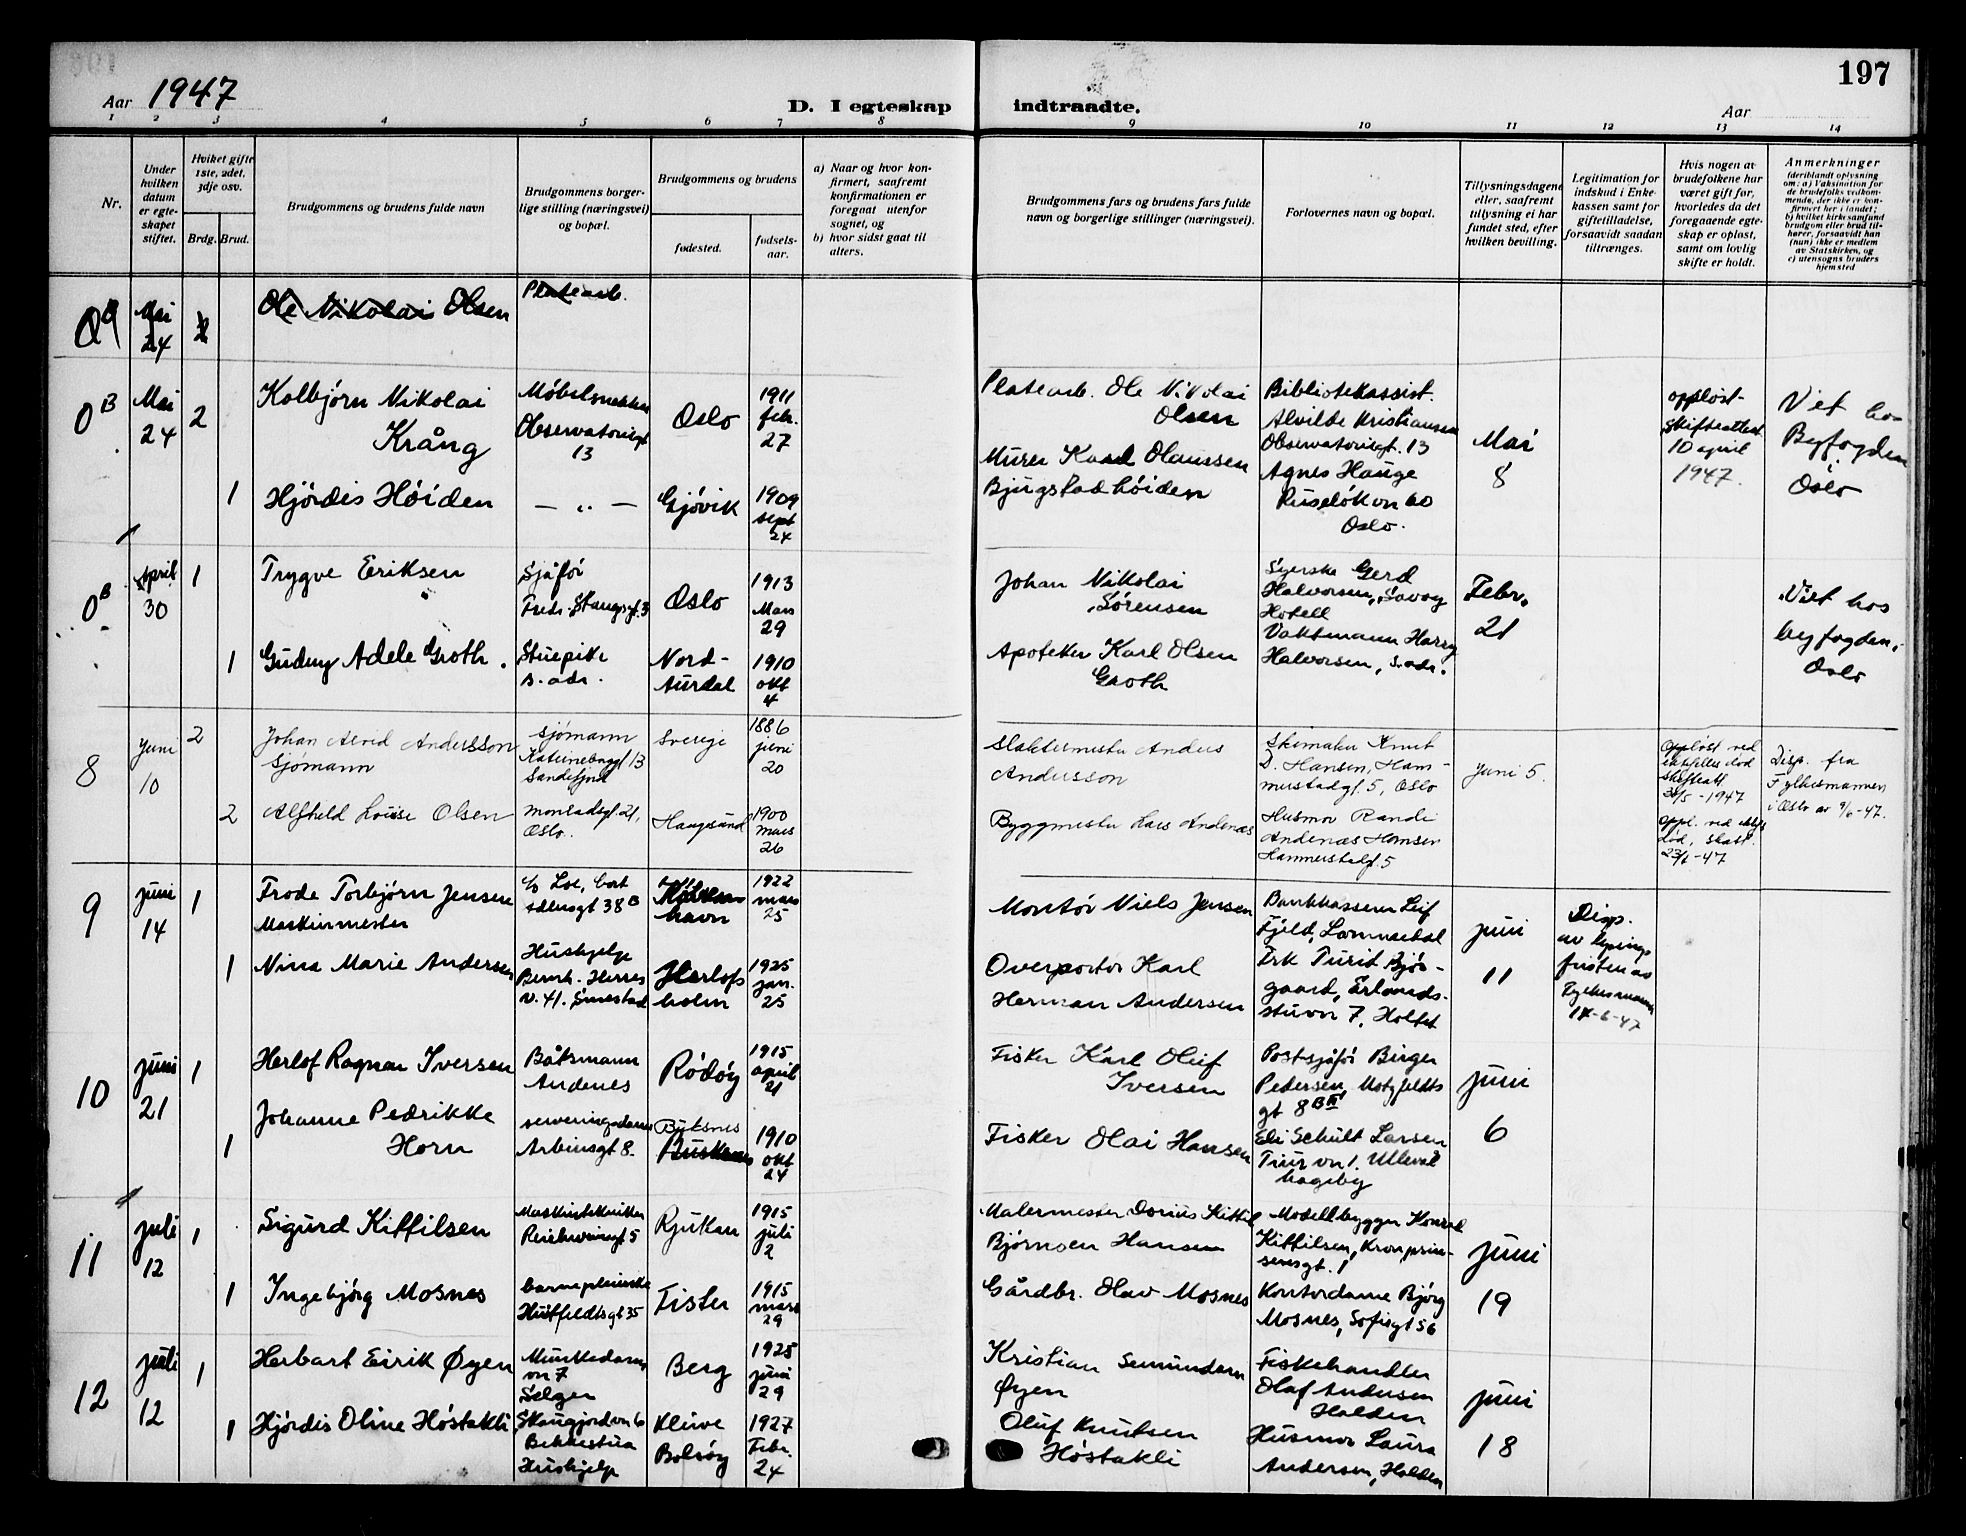 Aar 1947
D. I egteskap indtraadte.
Aar
197
1 2 3 4 5 6 7 8 9 10 11 12 13 14
Nr.
Under hvilken datum er egteskapet stiftet.
Hviket gifte 1ste, 2det, 3dje osv.
Brdg. Brud.
Brudgommens og brudens fulde navn
Brudgommens borgerlige stilling (næringsvei) og bopæl.
Brudgommens og brudens
fødested.
fødselsaar.
a) Naar og hvor konfirmert, saafremt konfirmationen er foregaat utenfor sognet, og
b) hvor sidst gaat til alters.
Brudgommens fars og brudens fars fulde navn og borgerlige stillinger (næringsvei).
Forlovernes navn og bopæl.
Tillysningsdagene eller, saafremt tillysning ei har fundet sted, efter hvilken bevilling.
Legitimation for indskud i Enkekassen samt for giftetilladelse, forsaavidt saadan tiltrænges.
Hvis nogen av brudefolkene har været gift før, hvorledes da det foregaaende egteskap er opløst, samt om lovlig skifte er holdt.
Anmerkninger (deriblandt oplysning om: a) Vaksination for de brudefolks vedkommende, der ikke er konfirmert her i landet; b) hvilket kirkesamfund brudgom eller brud tilhører, forsaavidt han (hun) ikke er medlem av Statskirken, og c) utensogns bruders hjemsted
Mai 24 2 Ole Nikolai Olsen Platearb.
0B Mai 24 2
Kolbjørn Nikolai Krång
Møbelsnekker Observatoriegt 13
Oslo
1911 febr. 27
Platearb. Ole Nikolai Olsen
Bibliotekassist. Alvilde Kristiansen Observatoriegt. 13
Mai 8
oppløst- skifteattest 10 april 1947.
Viet hos Byfogden Oslo
1 Hjördis Höiden
— „ —
Gjövik
1909 sept 24
Murer Karl Olaussen Bjugstad höiden
Agnes Hauge Ruseløkvn 60 Oslo.
0B April 30 1
Trygve Eriksen
Sjåfør Freds. Stangsgt. 3
Oslo
1913 Mars 29
Johan Nikolai Sørensen
Syerske Gerd Halvorsen, Savoy Hotell
Febr. 21
Viet hos byfogden, Oslo
1 Gudny Adele Groth.
Stuepike s. adr.
Nord-Aurdal
1910 okt 4
Apoteker Karl Olsen Groth
Vaktmann Harry Halvorsen, s. adr.
8 Juni 10 2
Johan Alvid Andersson sjømann
sjømann 13 Sandefjord
Sverige
1886 juni 20
Slaktermester Anders Andersson
Knut D. Hansen, Hammerstadgt. 5, Oslo
juni 5.
Oppløst ved død skifteatt 1947
Disp. fra Fylkesmannen i Oslo av 9/6-47.
2 Alfhild Louise Olsen
Monradsgt. 21, Oslo.
Haugesund
1900 mars 26
Byggmester Lars Andenæs
Husmor Randi Andenæs Hansen Hammerstadgt. 5
oppl. ved død, skatt. -47
9 juni 14 1
Frode Torbjørn Jensen Maskinmester
c/o Loe, Cort Adlersgt 38B
København
1922 mars 25
Montör Niels Jensen
Bankkasserer Leif Fjeld,
juni 11
Disp. av lysningsfristen av Fylkesmannen 14-6-47
1 Nina Marie Andersen
Hushjelp Bernh. Herres v. 41. Smestad
Herlofsholm
1925 jan. 25
Overportør Karl Herman Andersen
Frk Turid Bjørgaard, Erlandsstuvn 7, Holtet
10 juni 21 1
Herlof Ragnar Iversen
Båtsmann Andenes
Rödöy
1915 april 21
Fisker Karl Oluf Iversen
Postsjåför Birger Pedersen, Motzfeldts gt 8B III
juni 6
1 Johanne Pedrikke Horn
serveringsdame Arbinsgt 8.
Buksnes
1910 okt 24
Fisker Olai Hansen
Eli Schult Larsen Tiurvn 1. Ulleval hageby
11 juli 12 1
Sigurd Kittilsen
Maskintekniker Reichweinsgt 5
Rjukan
1915 juli 2
Malermester Dorius Kittil Bjørnsen Hansen
Modellbygger Konrad Kittilsen, Kronprinsensgt. 1
juni 19
1 Ingebjörg Mosnes
barnepleierske Huitfeldtsgt 35
Fister
1915 mars 29
Gårdbr. Olav Mosnes
Kontordame Bjørg Mosnes, Sofiegt 56
12 juli 12 1
Herbart Eirik Øyen
Munkedamsvn 7 Selger
Berg
1925 juni 29
Kristian Semundsen Øyen
Fiskehandler Olaf Andersen Halden
juni 18
1 Hjördis Oline Höstakli
Skaugjordvn 6 Bekkestua Hushjelp
Kleive Bolsöy
1927 Febr. 24
Oluf Knutsen Höstakli
Husmor Laura Andersen, Halden